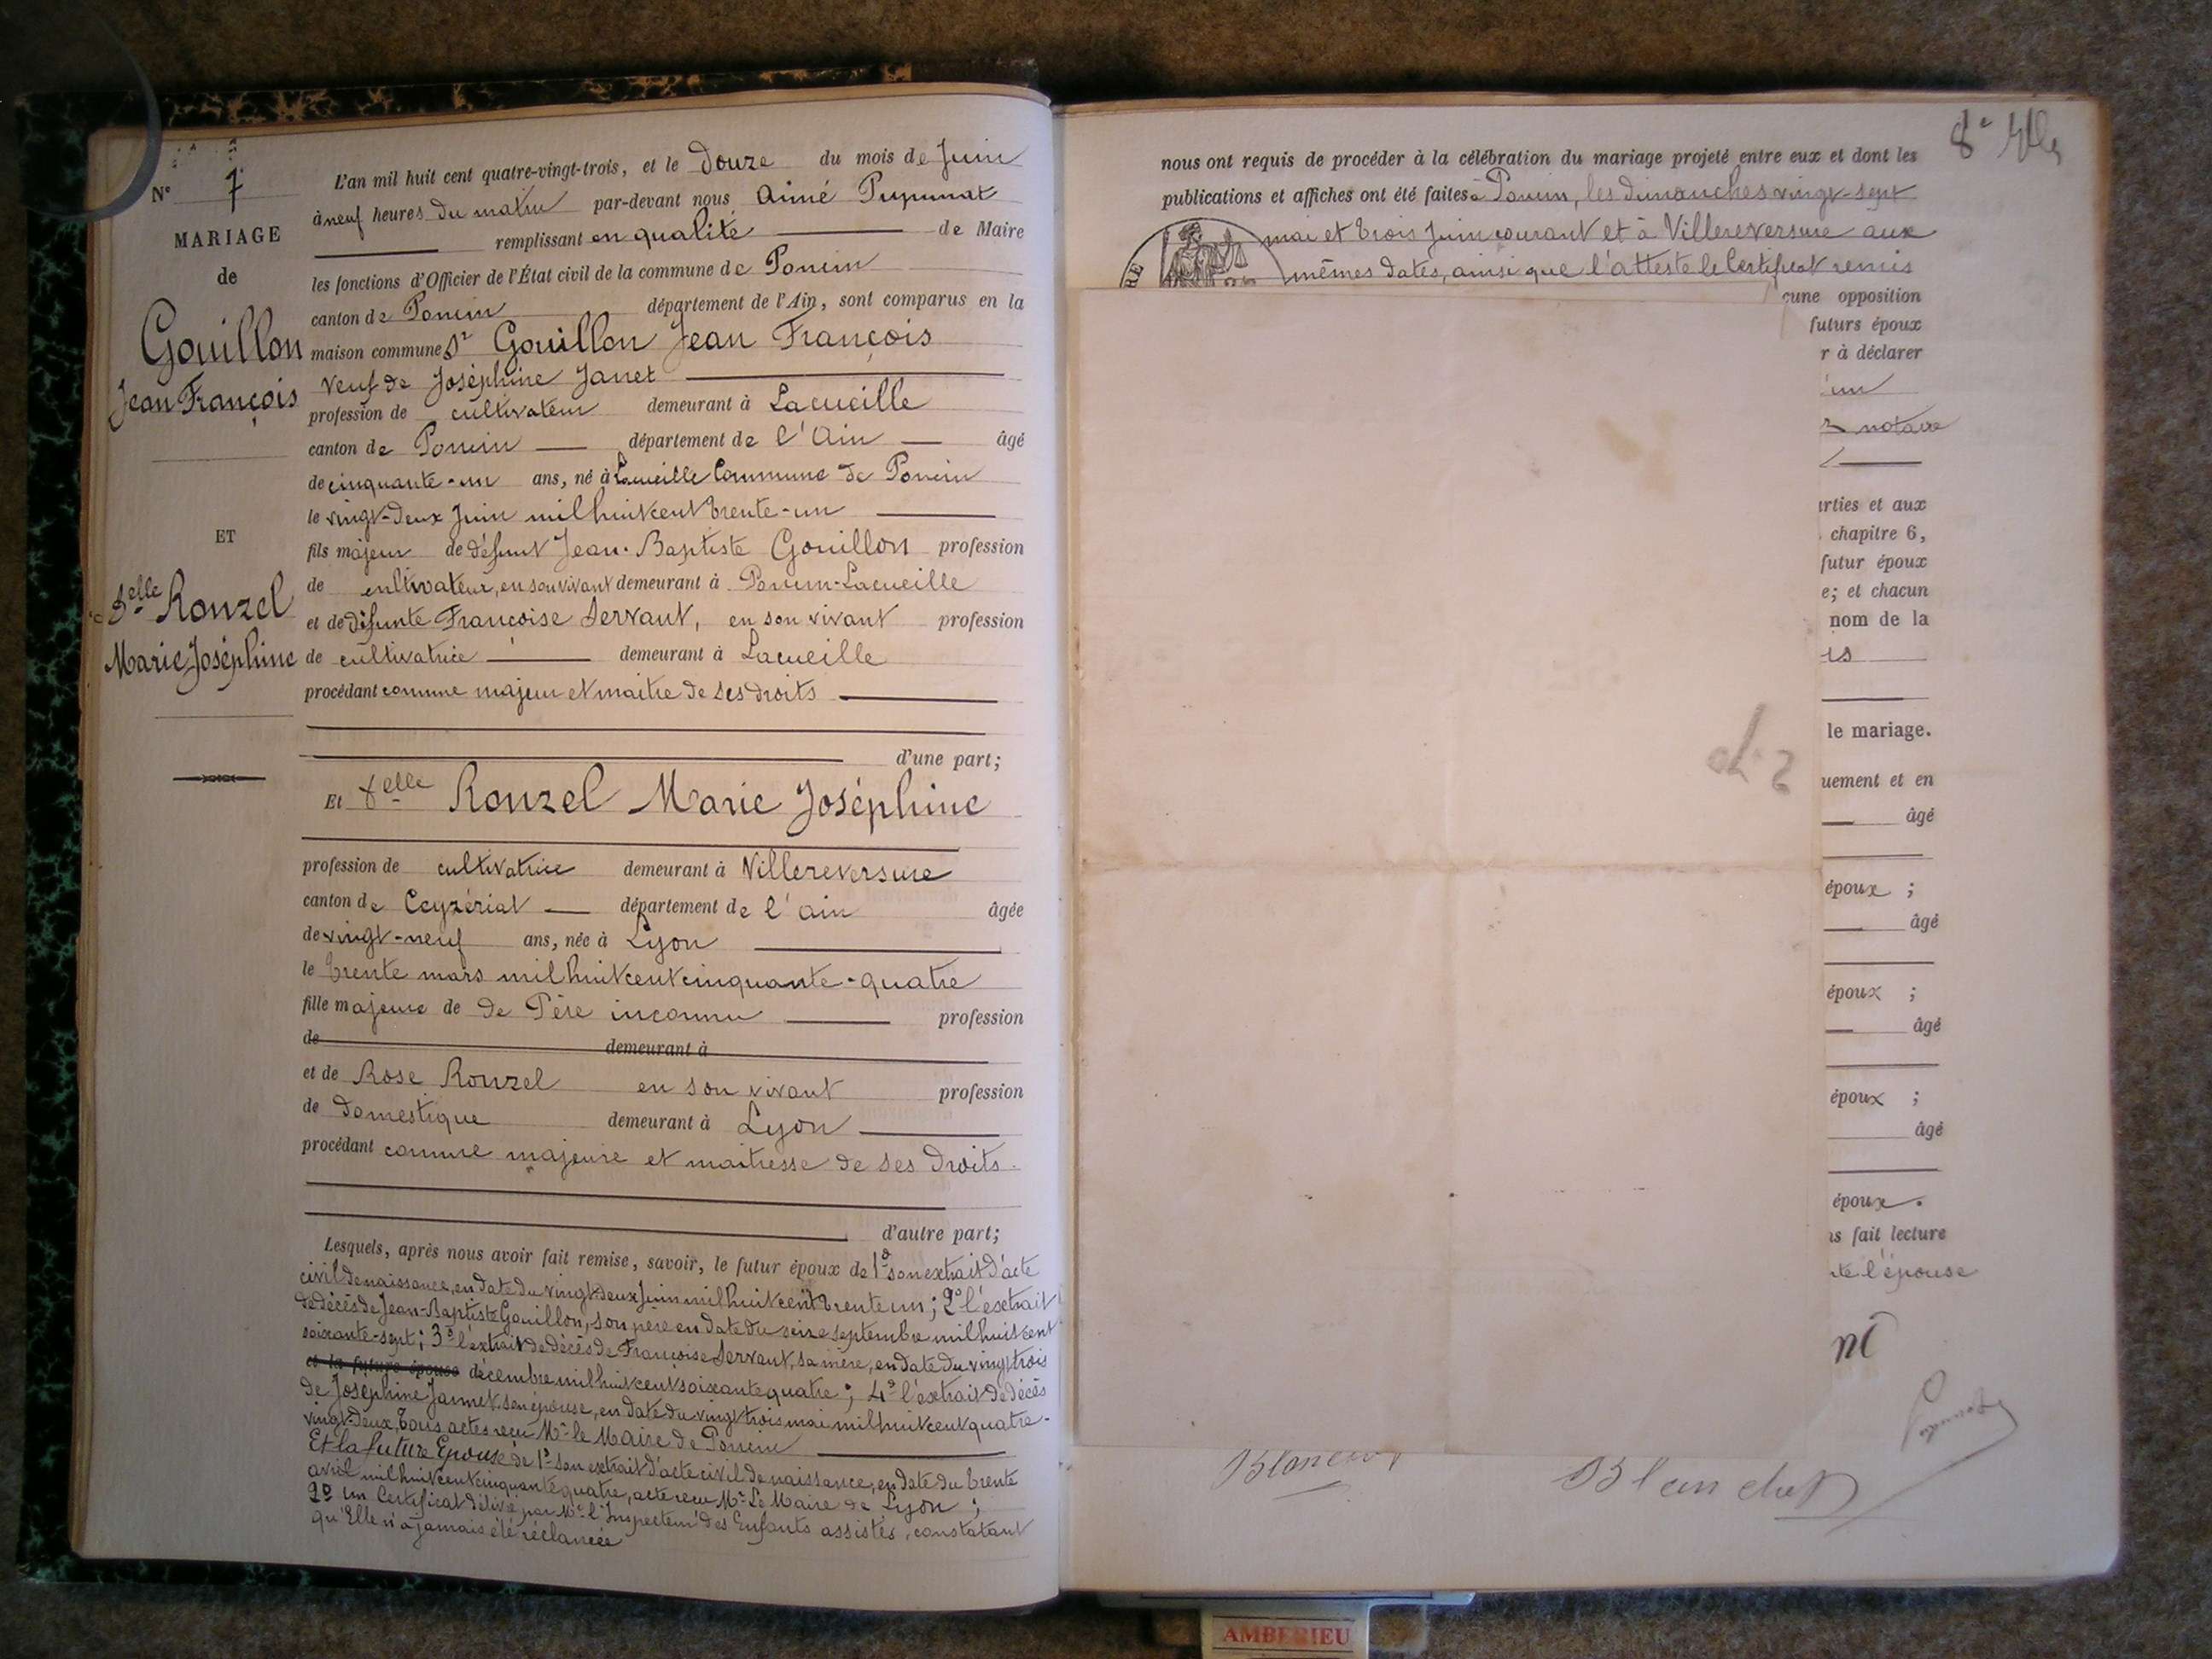 N° 7
MARIAGE
de
Gouillon
Jean François
ET
Delle Ronzel
Marie Joséphine
L'an mil huit cent quatre-vingt-trois, et le Douze du mois de Juin
à neuf heures du matin par-devant nous Aimé Pupunat
remplissant en qualité de Maire
les fonctions d'Officier de l'État civil de la commune de Poncin
canton de Poncin département de l'Ain, sont comparus en la
maison commune Sr Gouillon Jean François
Veuf de Joséphine Janet
profession de cultivateur demeurant à Lacueille
canton de Poncin département de l'Ain âgé
de cinquante-un ans, né à Lacueille Commune de Poncin
le vingt-deux Juin mil huit cent trente-un
fils majeur de défunt Jean-Baptiste Gouillon profession
de cultivateur, en son vivant demeurant à Poncin-Lacueille
et de défunte Françoise Servant, en son vivant profession
de cultivatrice demeurant à Lacueille
procédant comme majeur et maître de ses droits
d'une part;
Et Delle Ronzel Marie Joséphine
profession de cultivatrice demeurant à Villereversure
canton de Ceyzériat département de l'ain âgée
de vingt-neuf ans, née à Lyon
le trente mars mil huit cent cinquante-quatre
fille majeure de de Père inconnu profession
de demeurant à
et de Rose Ronzel en son vivant profession
de domestique demeurant à Lyon
procédant comme majeure et maitresse de ses droits.
d'autre part;
Lesquels, après nous avoir fait remise, savoir, le futur époux de 1° son extrait d'acte
civil de naissance, en date du vingt deux Juin mil huit cent trente un; 2° l'extrait
de décès de Jean-Baptiste Gouillon, son père en date du seize septembre mil huit cent
soixante-sept; 3° l'extrait de décès de Françoise Servant, sa mère, en date du vingt trois
et la future épouse décembre mil huit cent soixante quatre; 4° l'extrait de décès
de Joséphine Jannet son épouse, en date du vingt trois mai mil huit cent quatre-
vingt-deux, tous actes reçu Mr le Maire de Poncin
Et la future Epouse de 1° son extrait d'acte civil de naissance, en date du trente
avril mil huit cent cinquante quatre, acte reçu Mr Le Maire de Lyon;
2° un Certificat délivré par Mr l'Inspecteur des Enfants assistés, constatant
qu'Elle n'a jamais été réclamée
8e
nous ont requis de procéder à la célébration du mariage projeté entre eux et dont les
publications et affiches ont été faites à Poncin, les dimanches vingt-sept
mai et trois Juin courant et à Villereversure aux
mêmes dates, ainsi que l'atteste le Certificat remis
RE
cune opposition
futurs époux
r à déclarer
un
notaire
rties et aux
chapitre 6,
futur époux
e; et chacun
nom de la
is
le mariage.
uement et en
âgé
époux ;
âgé
époux ;
âgé
époux ;
âgé
époux.
ns fait lecture
te l'épouse
Blanchet
AMBERIEU